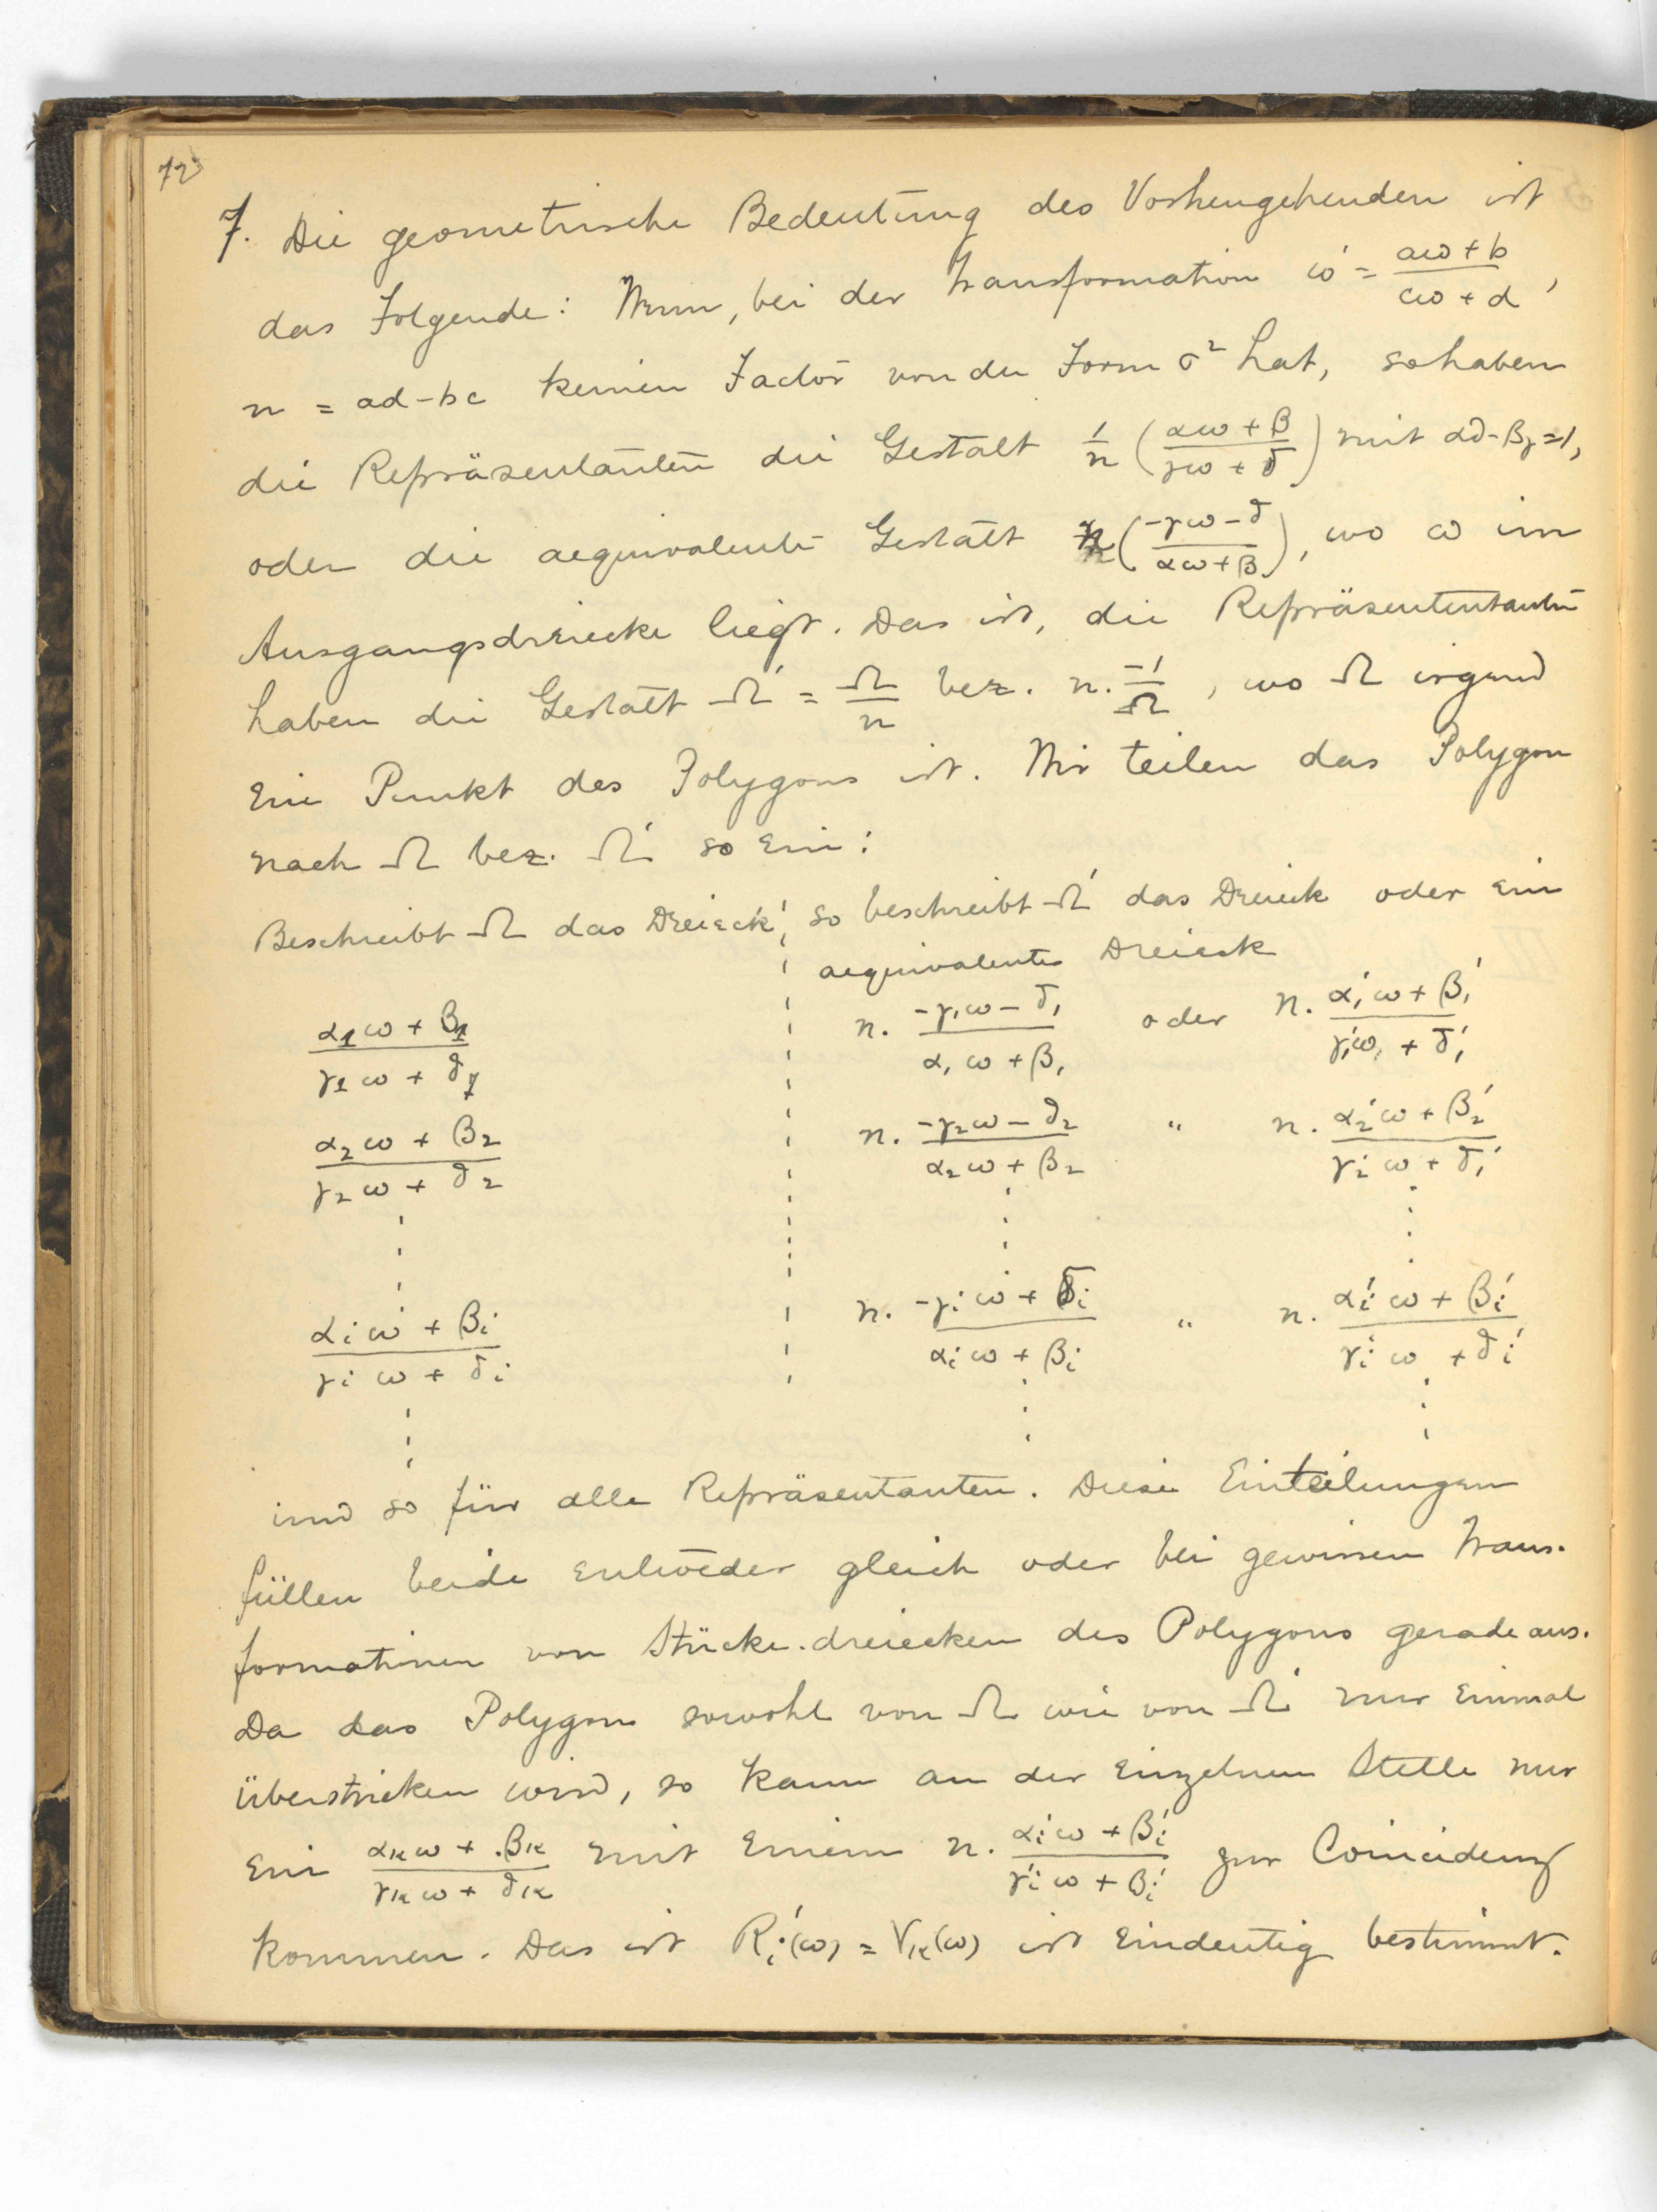 72
7. Die geometrische Bedeutung des Vorhengehenden ist
das Folgende: Wenn, bei der Transformation ω' = (aω + b)/(cω + d),
n = ad - bc keinen Factor von der Form σ² hat, so haben
die Repräsentanten die Gestalt 1/n ((αω + β)/(γω + δ)) mit αδ - βγ = 1,
oder die aequivalente Gestalt n((-γω - δ)/(αω + β)), wo ω im
Ausgangsdreiecke liegt. Das ist, die Repräsententanten
haben die Gestalt Ω' = Ω/n bez. n. -1/Ω, wo Ω irgend
ein Punkt des Polygons ist. Wir teilen das Polygon
nach Ω bez. Ω' so ein:
Beschreibt Ω das Dreieck, so beschreibt Ω' das Dreieck oder ein
aequivalentes Dreieck
(α₁ω + β₁)/(γ₁ω + δ₁) n. (-γ₁ω - δ₁)/(α₁ω + β₁) oder n. (α₁'ω + β₁')/(γ₁'ω + δ₁')
(α₂ω + β₂)/(γ₂ω + δ₂) n. (-γ₂ω - δ₂)/(α₂ω + β₂) " n. (α₂'ω + β₂')/(γ₂'ω + δ₁')
(αᵢω + βᵢ)/(γᵢω + δᵢ) n. (-γᵢω + δᵢ)/(αᵢω + βᵢ) " n. (αᵢ'ω + βᵢ')/(γᵢ'ω + δᵢ')
und so für alle Repräsentanten. Diese Einteilungen
füllen beide entweder gleich oder bei gewissen Trans-
formationen von Stücke-dreiecken des Polygons gerade aus.
Da das Polygon sowohl von Ω wie von Ω' nur einmal
überstricken wird, so kann an der einzelnen Stelle nur
ein (αₖω + βₖ)/(γₖω + δₖ) mit einem n. (αᵢ'ω + βᵢ')/(γᵢ'ω + βᵢ') zur Coincidenz
kommen. Das ist Rᵢ'(ω) = Vₖ(ω) ist eindeutig bestimmt.